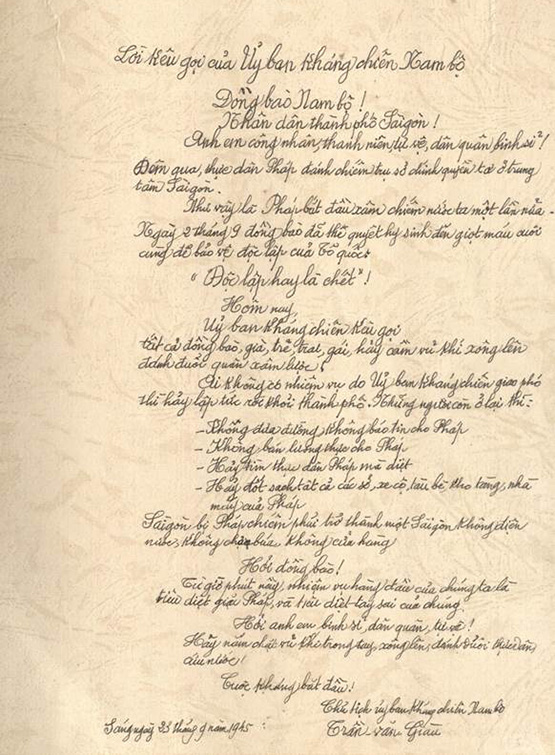 Lời kêu gọi của Ủy ban kháng chiến Nam bộ
Đồng bào Nam bộ !
Nhân dân thành phố Sàigòn !
Anh em công nhân, thanh niên, tự vệ, dân quân binh sĩ !
Đêm qua, thực dân Pháp đánh chiếm trụ sở chính quyền ta ở trung
tâm Sàigòn.
Như vậy là Pháp bắt đầu xâm chiếm nước ta một lần nữa -
Ngày 2 tháng 9 đồng bào đã thề quyết hy sinh đến giọt máu cuối
cùng để bảo vệ độc lập của Tổ quốc:
" Độc lập hay là chết " !
Hôm nay,
Uỷ ban kháng chiến kêu gọi
tất cả đồng bào, già, trẻ, trai, gái, hãy cầm vũ khí xông lên
đánh đuổi quân xâm lược !
Ai không có nhiệm vụ do Uỷ ban kháng chiến giao phó
thì hãy lập tức rời khỏi thành phố. Những người còn ở lại thì:
- Không đưa đường, không báo tin cho Pháp
- Không bán lương thực cho Pháp
- Hãy tìm thực dân Pháp mà diệt
- Hãy đốt sạch tất cả các sở, xe cộ, tàu bè, kho tàng, nhà
máy của Pháp
Sàigòn bị Pháp chiếm phải trở thành một Sàigòn không điện
nước, không chợ búa, không cửa hàng
Hỡi đồng bào !
Từ giờ phút này, nhiệm vụ hàng đầu của chúng ta là
tiêu diệt giặc Pháp, và tiêu diệt tay sai của chúng.
Hỡi anh em binh sĩ, dân quân, tự vệ !
Hãy nắm chặt vũ khí trong tay, xông lên, đánh đuổi thực dân,
cứu nước !
Cuộc kháng bắt đầu !
Chủ tịch ủy ban kháng chiến Nam bộ
Sáng ngày 23 tháng 9 năm 1945
Trần văn Giàu